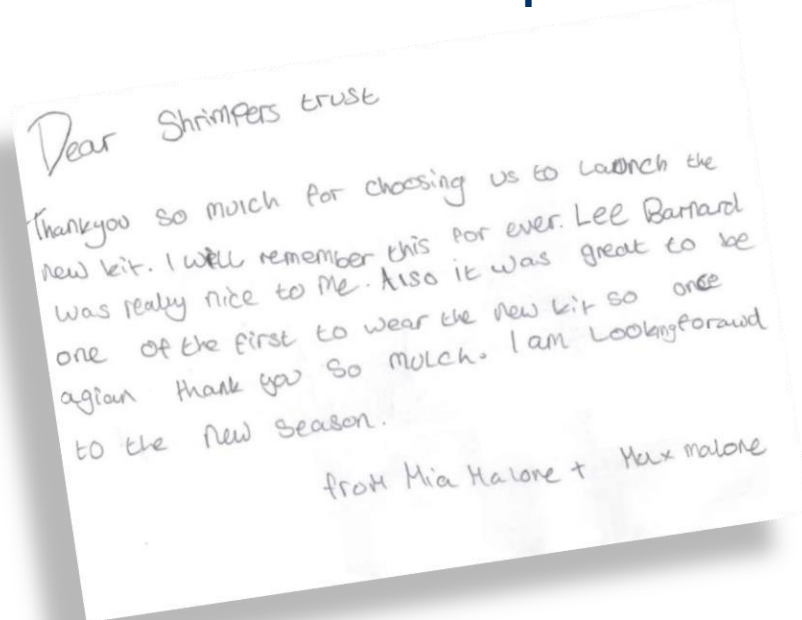 Dear Shrimpers trust
Thankyou so mutch for choosing us to launch the
new kit. I will remember this for ever. Lee Barnard
was really nice to me. Also it was great to be
one of the first to wear the new kit so once
agian thank you so mutch. I am Lookingforawd
to the new season.
from Mia Malone + Max malone